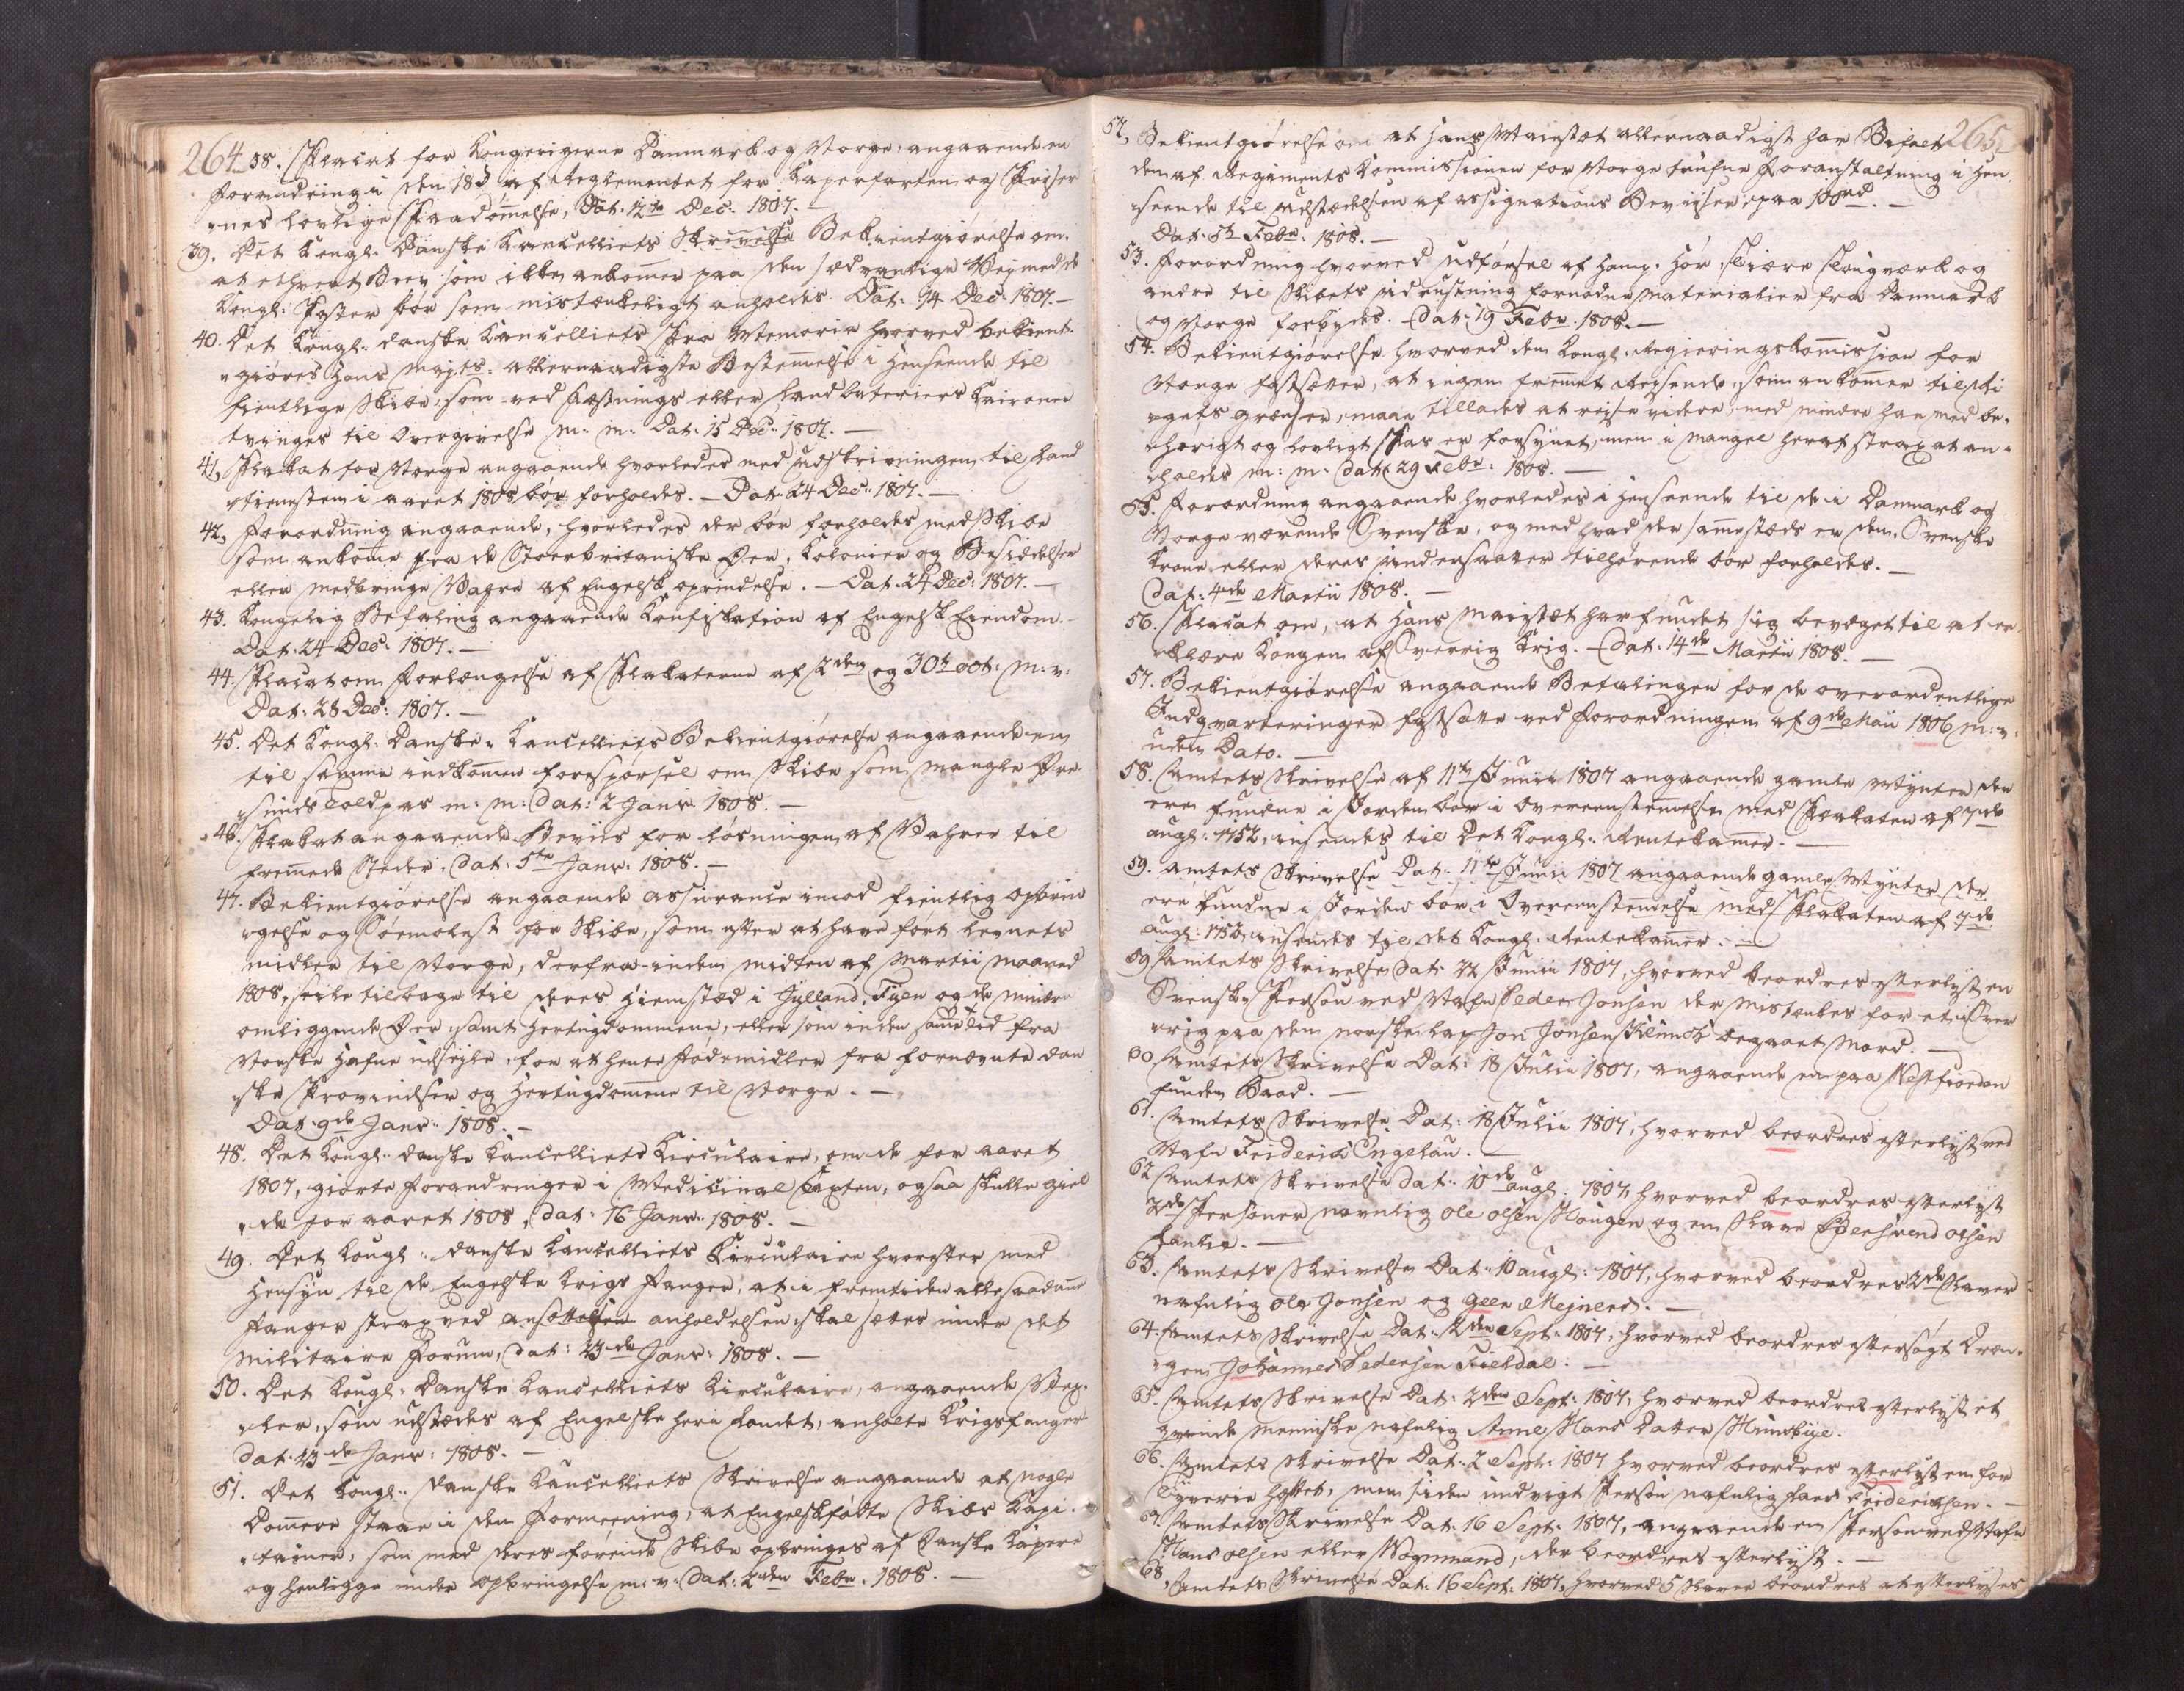 264
38. Placat for Kongerigerne Danmark og Norge, angaaende en
Forandring i den 18 § af Reglementet for Kaperfarten og Priser
nes lovlige Paadømmelse, Dat: 12te Dec: 1807. —
39. Det Kongl: Danske Kancelliets Skrivelse Bekientgiørelse om
at ethvert Brev som ikke ankommer paa den sædvanlige Vej med de
Kongl: Poster bør som mistænkeligt anholdes. Dat: 14 Dec: 1807. —
40. Det Kongl: danske Kancelliets Pro Memorie hvorved bekient-
giøres Hans Majts: allernaadigste Bestemmelse i Henseende til
fientlige Skibe, som ved Fæstnings eller Landbateriers Kanoner
tvinges til Overgivelse m: m: Dat: 15 Dec: 1807. —
41, Plakat for Norge angaaende hvorledes med Udskrivningen til Land
tienesten i aaret 1808 bør forholdes. — Dat: 24 Dec: 1807. —
42, Forordning angaaende, hvorledes der bør forholdes med Skibe
som ankomme fra de Storbritaniske Øer, Kolonier og Besiddelser
eller medbringe Vahre af Engelsk oprindelse. — Dat: 24 Dec: 1807. —
43. Kongelig Befaling angaaende Konfiskation af Engelsk Eiendom. —
Dat: 24 Dec: 1807. —
44. Placat om Forlængelse af Plakaterne af 2den og 30te oct: m: v:
Dat: 28 Dec: 1807. —
45. Det Kongl: Danske Kancelliets Bekientgiørelse angaaende en
til samme indkommen Forespørsel om Skibe som mangle Øre
sunds Toldpas m: m: Dat: 2 Janv: 1808. —
46. Plakat angaaende Beviis for Løsningen af Vahrer til
fremmede Steder. Dat: 5te Janv: 1808. —
47. Bekientgiørelse angaaende Assurance imod fientlig opbrin
gelse og Søemolest for Skibe, som efter at have ført levnets
midler til Norge, derfra inden midten af Martii Maaned
1808, seile tilbage til deres Hiemsted i Jylland, Fyen og de mindre
omliggende Øer samt Hertugdommene, eller som inden samme Tid fra
Norske Hafne udseile, for at hente Fødemidler fra fornævnte dan
ske Provindser og Hertugdømme til Norge. —
Dat: 9de Janv: 1808. —
48. Det Kongl: danske Kancelliets Circulaire, om de for aaret
1807, giorte Forandringer i Medicinal Taxten, ogsaa skulle giel
de for aaret 1808, Dat: 16 Janv: 1808. —
49. Det Kongl: danske Kancelliets Circulaire hvorefter med
Hensyn til de Engelske Krigs Fanger, at i Fremtiden alle saadanne
Fanger strax ved ansættelsen anholdelsen skal sættes under det
Militaire Forum, Dat: 23de Janv: 1808. —
50. Det Kongl: Danske Kancelliets Circulaire, angaaende Vex-
ler, som udstædes af Engelske her i Landet, anholte Krigsfanger
Dat: 23de Janv: 1808. —
51. Det Kongl: Danske Kancelliets Skrivelse angaaende at nogle
Dommere staae i den Formeening, at Engelskfødte Skibs Kapi-
tainer, som med deres førende Skibe opbringes af Danske Kapere
og henligge under opbringelse m: v: Dat: 2den Febr: 1808. —
265
52, Bekientgiørelse om at Hans Maiestæt allernaadigst har Bifalt
den af Regierings Kommissionen for Norge trufne Foranstaltning i Hen
seende til Udstædelsen af assignations Beviiser paa 100rd. —
Dat: 5te Febr: 1808. —
53. Forordning hvorved Udførsel af Hamp, Hør, Tiære Tougværk og
andre til Skibets Udrustning fornødne Materialier fra Danmark
og Norge forbydes. Dat: 19 Febr: 1808. —
54. Bekientgiørelse hvorved den Kongl: Regieringskommission for
Norge fastsætter, at ingen fremmet Reisende, som ankommer til Ri
gets grændser, maae tillades at rejse videre, med mindre han med be-
hørigt og lovligt Pas er forsynet, men i mangel heraf strax at an-
holdes m: m: Dat: 29 Febr: 1808. —
55. Forordning angaaende hvorledes i Henseende til de i Danmark og
Norge værende Svenske, og med hvad der sammesteds er den Svenske
Krone eller deres Undersaatter tilhørende bør forholdes. —
Dat: 4de Martii 1808. —
56. Placat om, at Hans Maiestæt har fundet sig bevæget til at er
klære Kongen af Sverrig Krig. — Dat: 14de Martii 1808. —
57. Bekientgiørelse angaaende Betalingen for de overordentlige
Indqvarteringer fastsatte ved Forordningen af 9de Maii 1806 m: v:
uden Dato. —
58. Amtets Skrivelse af 11te Junii 1807 angaaende gamle Mynter der
ere fundne i Jorden bør i Overeenstemmelse med Plakaten af 7de
augl: 1752, insendes til det Kongl: Rentekammer. —
59. Amtets Skrivelse Dat: 11te Junii 1807 angaaende gamle Mynter der
ere fundne i Jorden bør i Overeenstemmelse med Plakaten af 7de
Augl: 1752, insendes til det Kongl: Rentekammer. —
59 Amtets Skrivelse Dat: 22 Junii 1807, hvorved beordres efterlyst en
Svensk Person ved Nafn Peder Jonsen der mistænkes for et i Sver
rig paa den norske Lap Jon Jonsen begaaet Mord. —
60 Amtets Skrivelse Dat: 18 Julii 1807, angaaende en paa Vestfiorden
funden Baad. —
61. Amtets Skrivelse Dat: 18 Julii 1807, hvorved beordres efterlyst ved
Nafn Friderich Engelau. —
62 Amtets Skrivelse Dat: 10de augl: 1807, hvorved beordres efterlyst
2de Personer navnlig Ole Olsen Hougen og en Slave Svend Olsen
—
63. Amtets Skrivelse Dat: 10 augl: 1807, hvorved beordres 2de Slaver
nafnlig Ole Jonsen og Geen Mejners. —
64. Amtets Skrivelse Dat: 2den Sept: 1807, hvorved beordres eftersøgt Dren-
gen Johannes Pedersen Fieldal. —
65. Amtets Skrivelse Dat: 2den Sept: 1807, hvorved beordres efterlyst et
qvinde Menniske nafnlig Anne Hans Datter Hundbye.
66. Amtets Skrivelse Dat: 2 Sept: 1807 hvorved beordres efterlyst en for
Tyverie hæftet, men siden undvigt Person nafnlig Lars Friderichsen. —
67. Amtets Skrivelse Dat: 16 Sept: 1807, angaaende en Person ved Nafn
Hans Olsen eller Wognmand, der beordres efterlyst. —
68, Amtets Skrivelse Dat: 16 Sept: 1807, hvorved 5 Slaver beordres at efterlyses